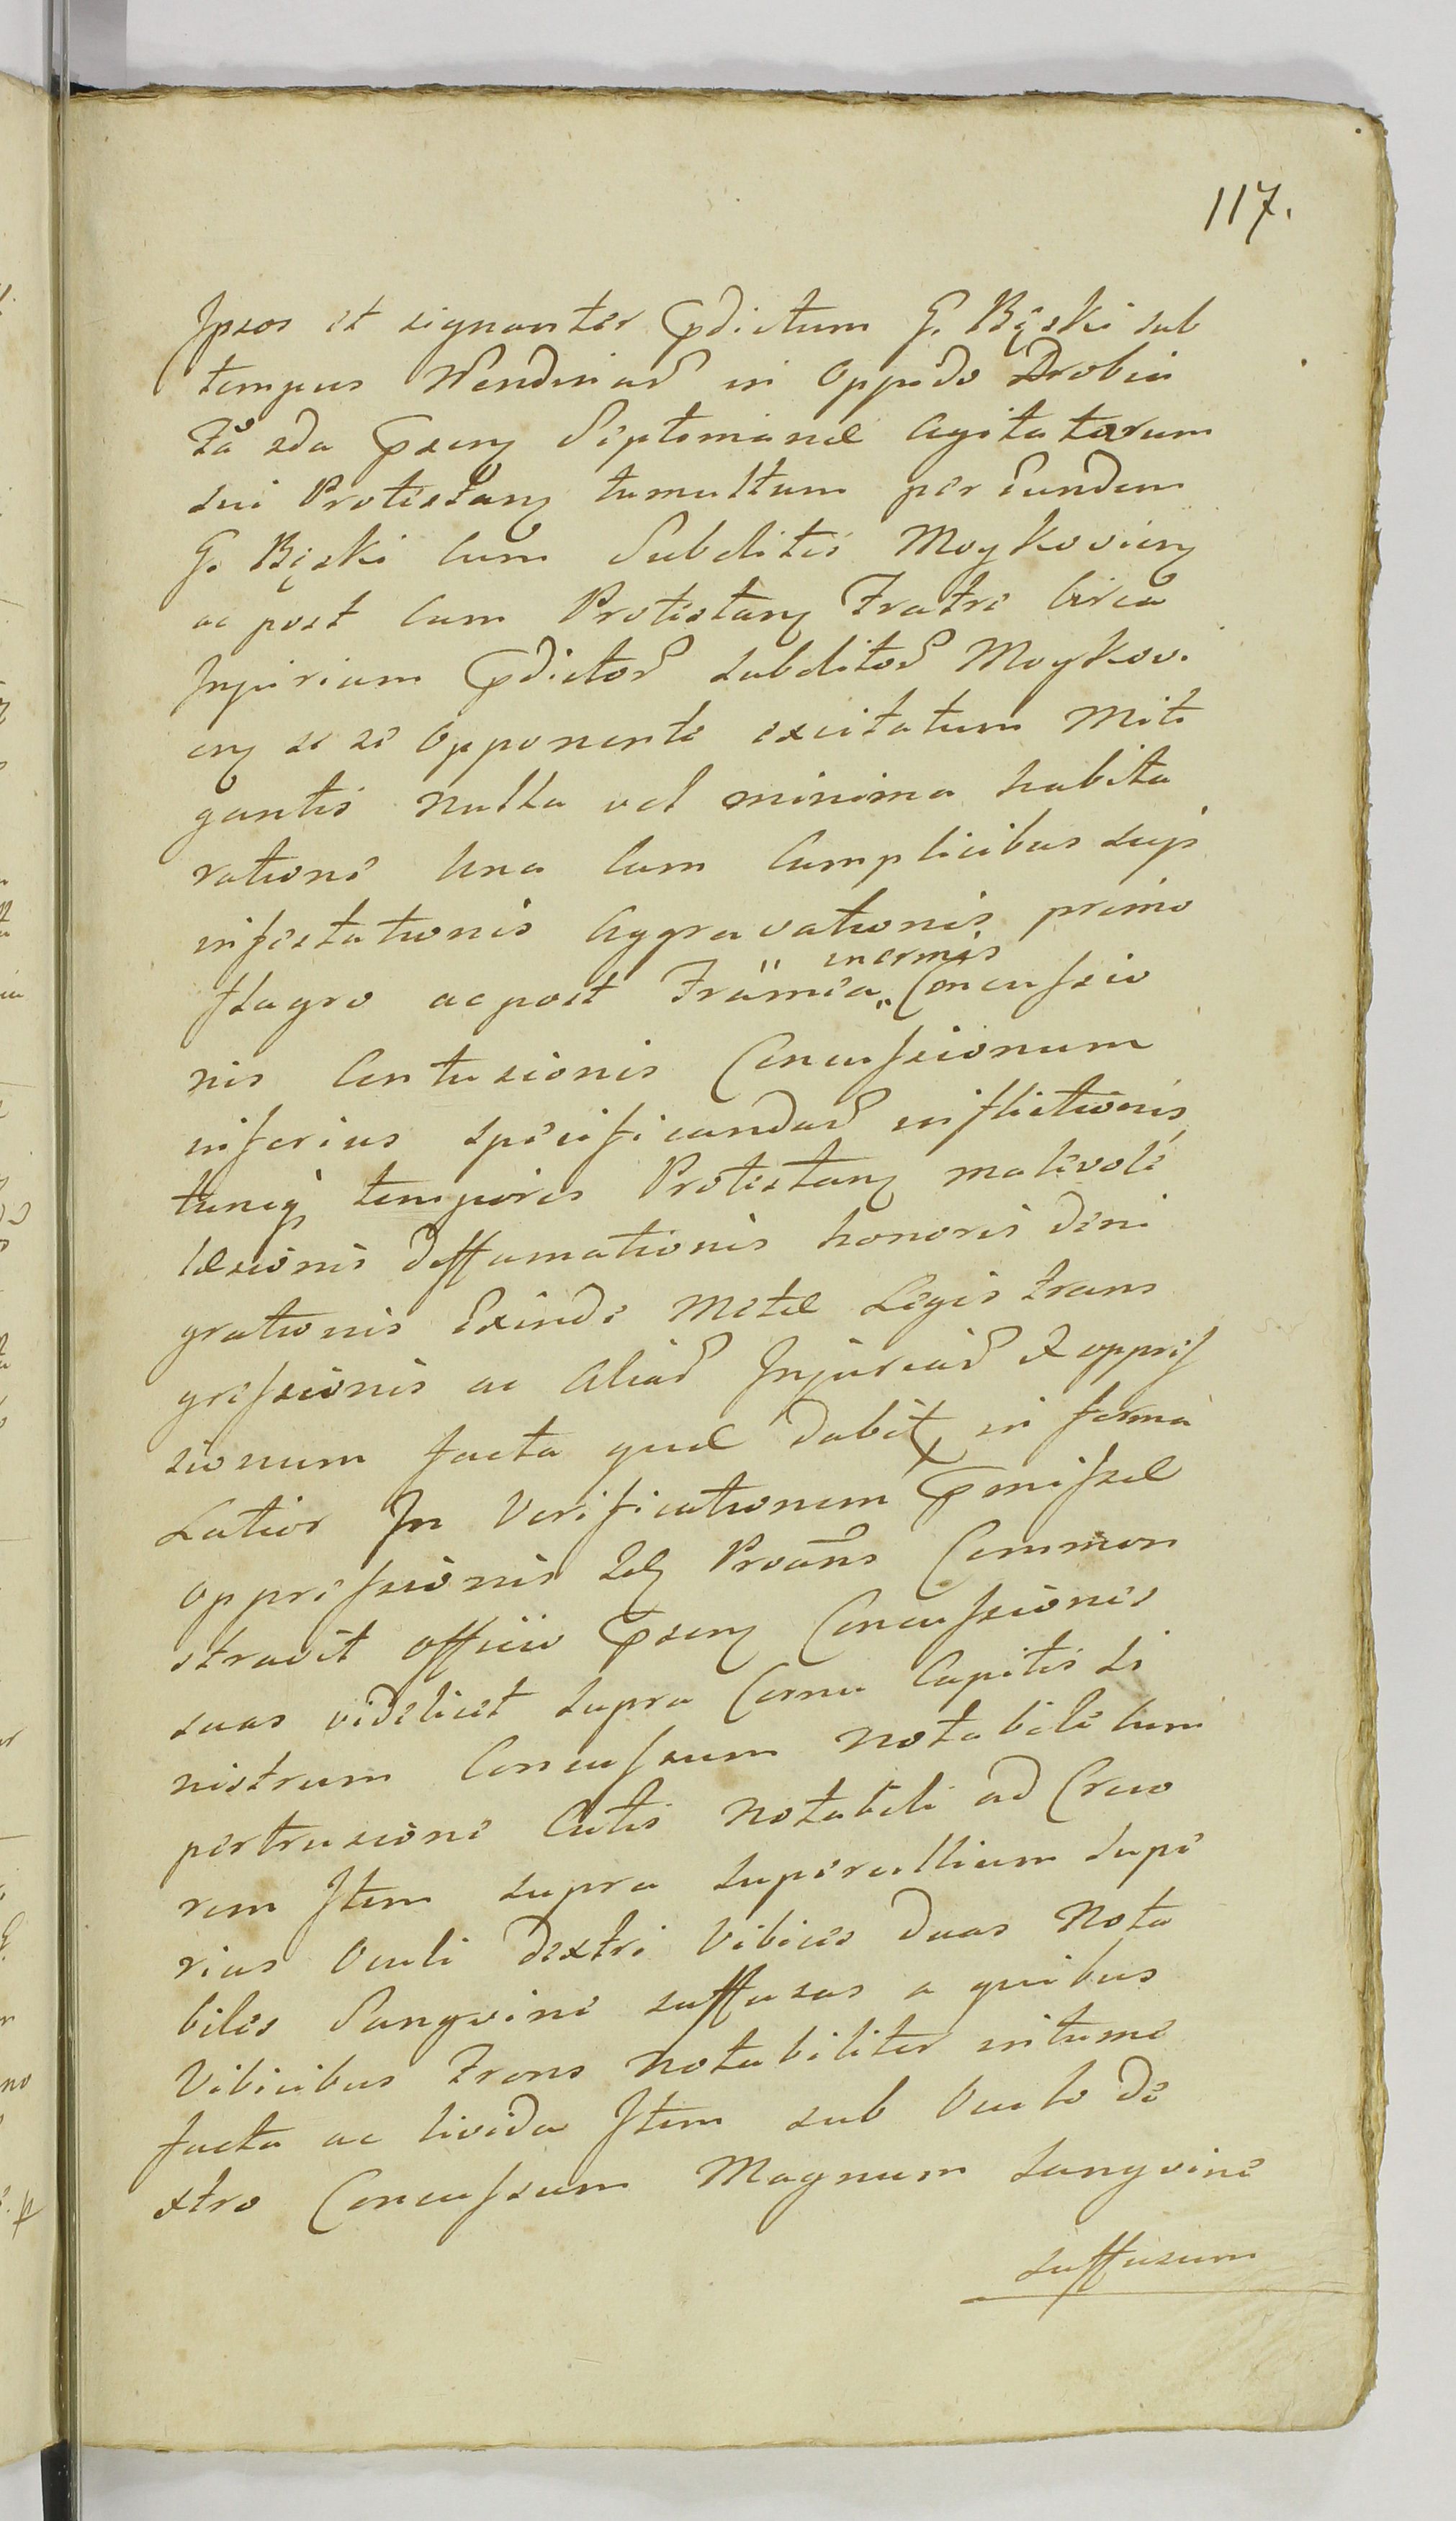 117.
Ipsos et signanter Pdictum G. Bęski sub
tempus Nendinar in Oppido Drobin
Fa 2da Psen Septimanæ Agitatarum
sui Protestan tumultum per Eundem
G. Bęski Cum Subditis Moykovien
ac post Cum Protestan Fratre Circa
Injuriam Pdictor subditor Moykovi
en se se Opponente excitatum Miti
gantis nulla vel minima habita
ratione Una Cum Complicibus suis
infestationis Aggravationis primo
flagro ac post Framea inermis Concussio
nis Contusionis Concussionum
inferius specificandar inflictionis
tuncq temporis Protestan malevole
læsionis deffamationis honoris deni
grationis Exinde Metæ Legis trans
gressionis ac Aliar Injuriar et oppres
sionum facta quæ dabit in forma
Latior In Verificationem Pmissæ
oppressionis Id Proans CommON
stravit officio Psen Concussiones
suas videlicet supra Cornu Capitis Si
nistrum Concussum notabile cum
pertrusione Cutis notabili ad Cruo
rem Item supra supercillium supe
rius Oculi dextri Vibices duas Nota
biles Sangvine suffusas a quibus
Vibicibus Frons notabiliter intume
facta ac livida Item sub Oculo de
xtro Concussum Magnum sangvine
suffusum